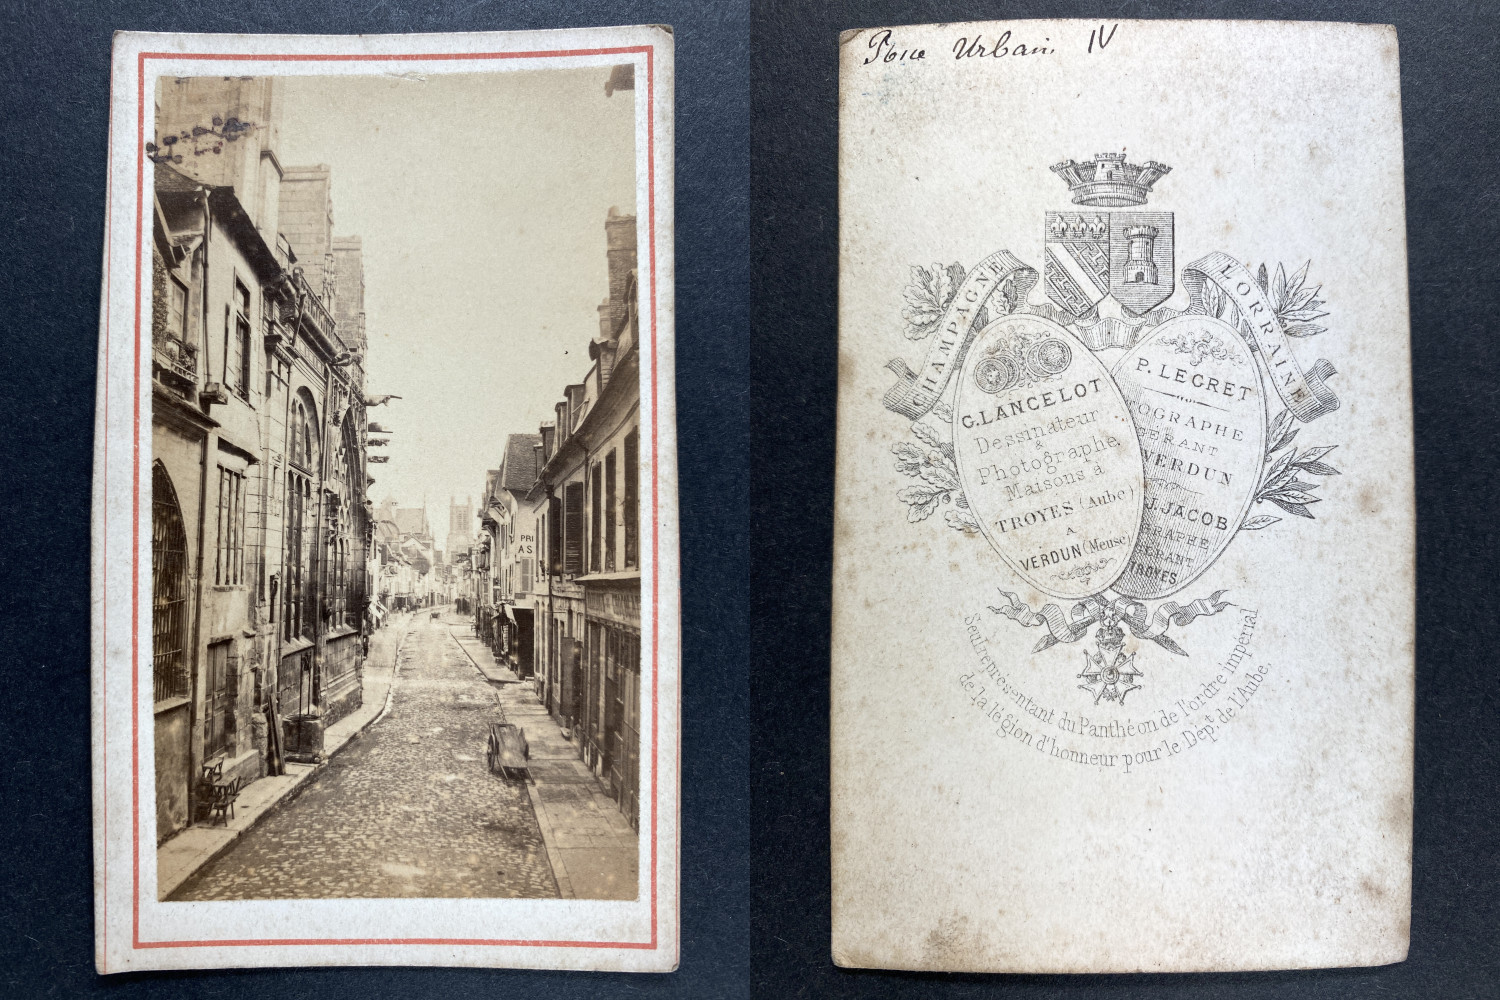 PRI
AS
Rue Urbain IV
CHAMPAGNE
LORRAINE
G. LANCELOT
Dessinateur
&
Photographe
Maisons à
TROYES (Aube)
A
VERDUN (Meuse)
P. LEGRET
OGRAPHE
GÉRANT
VERDUN
J. JACOB
GRAPHE
GÉRANT
TROYES
Seul représentant du Panthéon de l'ordre impérial
de la légion d'honneur pour le Dépt. de l'Aube,